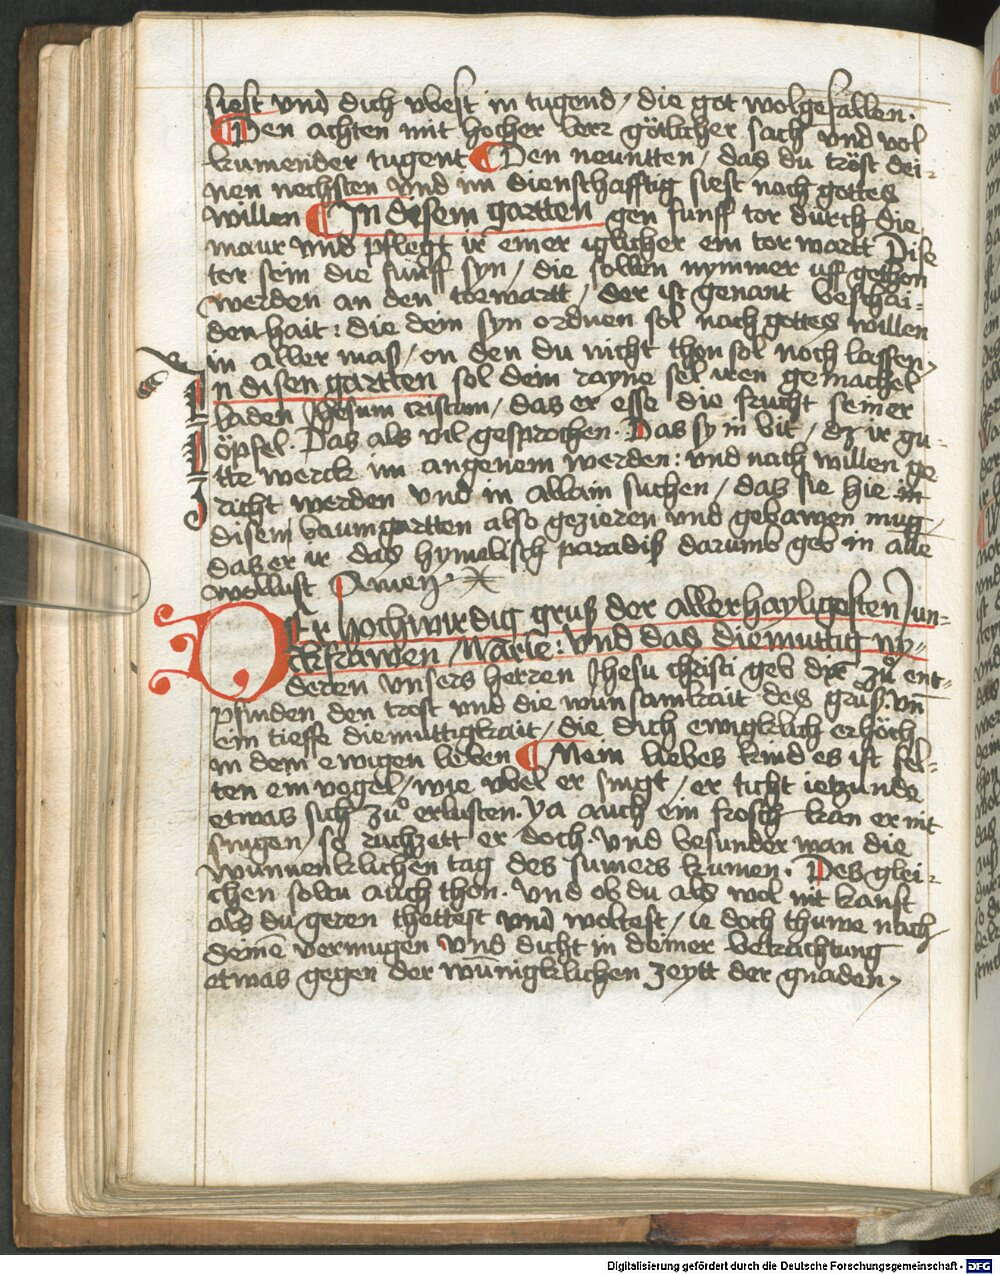 siest vnd dich vbest in tugend / die got wolgefallen.
¶ Den achten mit hocher lerr götlicher sach vnd vol
kumender tugent ¶ Den neuntten / das du tröst dei-
nen nechsten vnd im diensthafftig siest noch gottes
willen ¶ In disem gartten gen funff tor durch die
maur vnd pflegt ir einer iglicher ein tor wartt Dise
tor sein die fünff syn / die sollen nymmer uff gethon
werden an den torwartt / der ist genant beschai-
den hait : die dein syn ordnen sol noch gottes willen
in aller mas / on den du nicht thon sol noch lassen /
In disen gartten sol dein rayne sel iren gemachel
laden Jhesum cristum / das er esse die frucht seiner
öpfel. Das als vil gesprochen. Das sy in bit / dz ir gu-
tte werck im angenem werden : vnd nach willen ge
richt werden vnd in allain suchen / das sie hie in
disem baumgartten also gezieren vnd gebawen mug /
das er ir das hymelisch paradiß darumb geb in alle
wollust Amen.
Der hochwirdig gruß der allerhayligesten Jun-
ckfrawen Marie : vnd das diemuttig ny-
deren vnsers herren Jhesu christi geb dir zů ent-
pfinden den trost vnd die wunsamkait des grůß. vn̄
ein tieffe diemuttigkait / die dich ewigklich erhöch
in dem ewigen leben ¶ Mein liebes kind es ist sel-
ten ein vogel / wie vbel er singt / er ticht ietzunde
etwas sich zů erlusten. ya auch ein frosch kan er nit
singen / so ruchzett er doch. vnd besunder wan die
wunnenklichen tag des sumers kumen. Des glei-
chen soltu auch thon. vnd ob du als wol nit kanst
als du geren thettest vnd woltest / ie doch thuwe nach
deinē vermugen vnd dicht in deiner betrachtung
etwas gegen der wūnigklichen zeytt der gnaden /
Digitalisierung gefördert durch die Deutsche Forschungsgemeinschaft - DFG